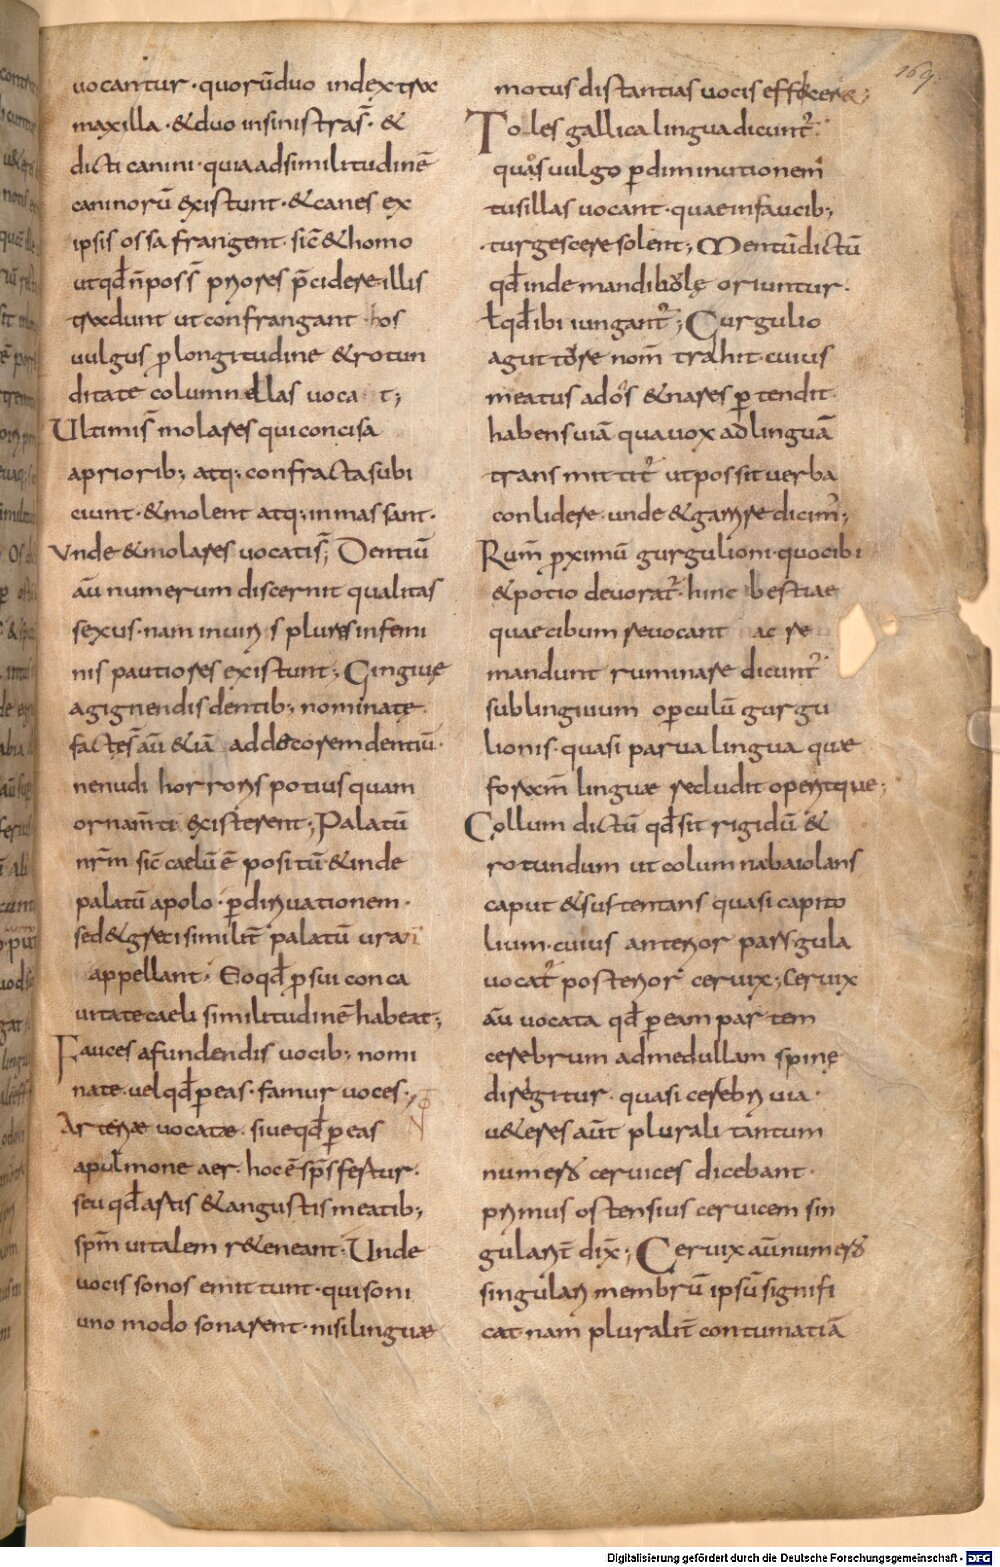 uocantur · quorū duo index tra
maxilla · & duo insinistras̄ · &
dicti canini · quia adsimilitudinē
caninorū existunt · & canes ex
ipsis ossa frangent · sic̄ & homo
utqđ n̄ poss̄ priores p̄cidere illis
tradunt ut confrangant hos
uulgus p̱ longitudine & rotun
ditate columnellas uoca t;
Ultimis̄ molares qui concisa
aprioribꝫ atqꝫ confracta subi
ciunt · & molent atqꝫ inmassant ·
Vnde & molares uocatis̄; Dentiū
aū numerum discernit qualitas
sexus · nam inuiris plures infemi
nis pautiores existunt; Gingiuę
agignendis dentibꝫ nominatę ·
factęs̄ aū &iā addecorem dentiū ·
nenudi horroris potius quam
ornam̄ti existerent; Palatū
nr̄m sic̄ caelū ē positū & inde
palatū apolo · p̱ diriuationem ·
sed & greci similit̄ palatū uran
appellant · Eoqđ p̱ sui conca
uitate caeli similitudinē habeat;
Fauces afundendis uocibꝫ nomi
nate · uel qđ p̱ eas · famur uoces;
Arteriæ uocatæ · siue qđ p̱ eas
apulmone aer · hoc ē sp̄s fertur ·
seu qđ artis & angustis meatibꝫ
sp̄m uitalem r&eneant · Unde
uocis sonos emittunt · qui soni
uno modo sonarent · nisi linguæ
motus distantias uocis efficeret;
Toles gallica lingua dicunt̄ ·
quas uulgo p̱ diminutionem
tusillas uocant · quae infaucibꝫ
turgescere solent; Mentū dictū
qđ inde mandibolę oriuntur ·
ł qđ ibi iungant̄; Curgulio
agutture nom̄ trahit cuius
meatus ados & nares p̱tendit ·
habens uiā qua uox ad linguā
transmittit̄ ut possit uerba
conlidere · unde & garrire dicim̄;
Rum̄ p̱ximū gurgulioni · quo cibi
& potio deuorat̄ · hinc bestiae
quae cibum reuocant ac re
mandunt ruminare dicunt̄
sublinguium op̱culū gurgu
lionis · quasi parua lingua quæ
foram̄ linguæ recludit operitque;
Collum dictū qđ sit rigidū &
rotundum ut columna baiolans
caput & sustentans quasi capito
lium · cuius anterior pars gula
uocat̄ posterior cervix; Cervix
aū uocata qđ p̱ eam partem
cerebrum admedullam spinę
dirigitur · quasi cerebri uia ·
u&eres aūt plurali tantum
numero cervices dicebant ·
primus ostensius cervicem sin
gularit̄ dix̄; Cervix aū numero
singulari membrū ipsū signifi
cat · nam pluralit̄ contumatiā
169.
Digitalisierung gefördert durch die Deutsche Forschungsgemeinschaft - DFG